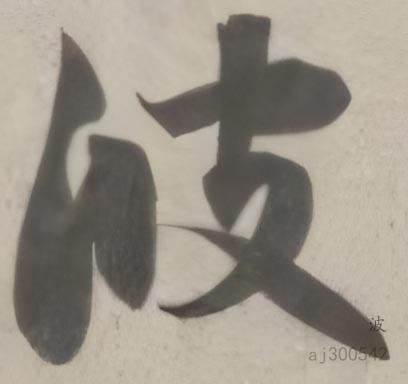 伎
波
aj300542